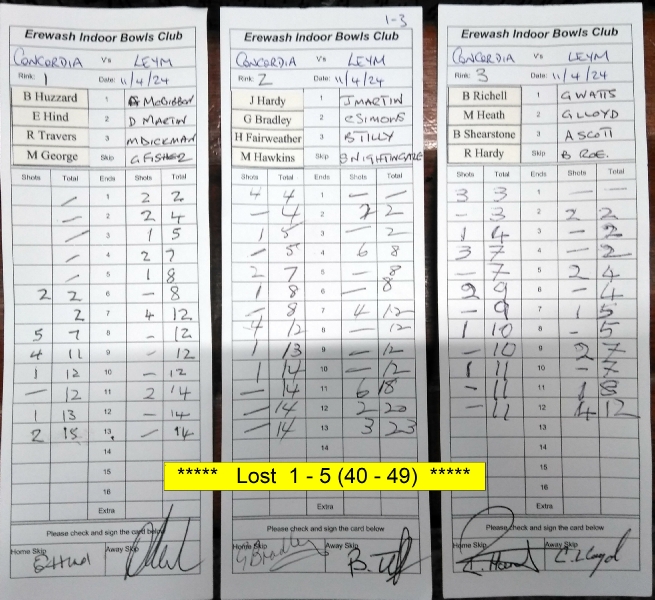 Erewash Indoor Bowls Club
CONCORDIA Vs LEYM
Rink: 1 Date: 11/4/24
B Huzzard 1 A McGibbon
E Hind 2 D MARTIN
R Travers 3 M DICKMAN
M George Skip G FISHER
Shots Total Ends Shots Total
/ 1 2 2
/ 2 2 4
/ 3 1 5
/ 4 2 7
/ 5 1 8
2 2 6 - 8
2 7 4 12
5 7 8 - 12
4 11 9 - 12
1 12 10 - 12
- 12 11 2 14
1 13 12 - 14
2 15 13 - 14
14
15
16
Extra
Please check and sign the card below
Home Skip Away Skip
E Hind
1-3
Erewash Indoor Bowls Club
CONCORDIA Vs LEYM
Rink: 2 Date: 11/4/24
J Hardy 1 J MARTIN
G Bradley 2 C SIMONS
H Fairweather 3 B TILLY
M Hawkins Skip B NIGHTINGALE
Shots Total Ends Shots Total
4 4 1 - -
- 4 2 2 2
1 5 3 - 2
- 5 4 6 8
2 7 5 - 8
1 8 6 - 8
- 8 7 4 12
4 12 8 - 12
1 13 9 - 12
1 14 10 - 12
- 14 11 6 18
- 14 12 2 20
- 14 13 3 23
14
Extra
Please check and sign the card below
Home Skip Away Skip
G Bradley
Erewash Indoor Bowls Club
CONCORDIA Vs LEYM
Rink: 3 Date: 11/4/24
B Richell 1 G WATTS
M Heath 2 G LLOYD
B Shearstone 3 A SCOTT
R Hardy Skip B ROE.
Shots Total Ends Shots Total
3 3 1 - -
- 3 2 2 2
1 4 3 - 2
3 7 4 - 2
- 7 5 2 4
2 9 6 - 4
- 9 7 1 5
1 10 8 - 5
- 10 9 2 7
1 11 10 - 7
- 11 11 1 8
- 11 12 4 12
13
14
15
16
Extra
Please check and sign the card below
Home Skip Away Skip
***** Lost 1 - 5 (40 - 49) *****